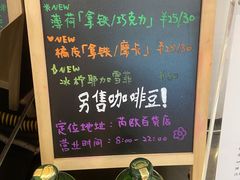 NEW
薄荷「拿铁/巧克力」¥25/30
NEW
橘皮「拿铁/摩卡」¥25/30
NEW
冰柠耶加雪菲
另售咖啡豆!
定位地址：芮欧百货店
营业时间：8:00-22:00